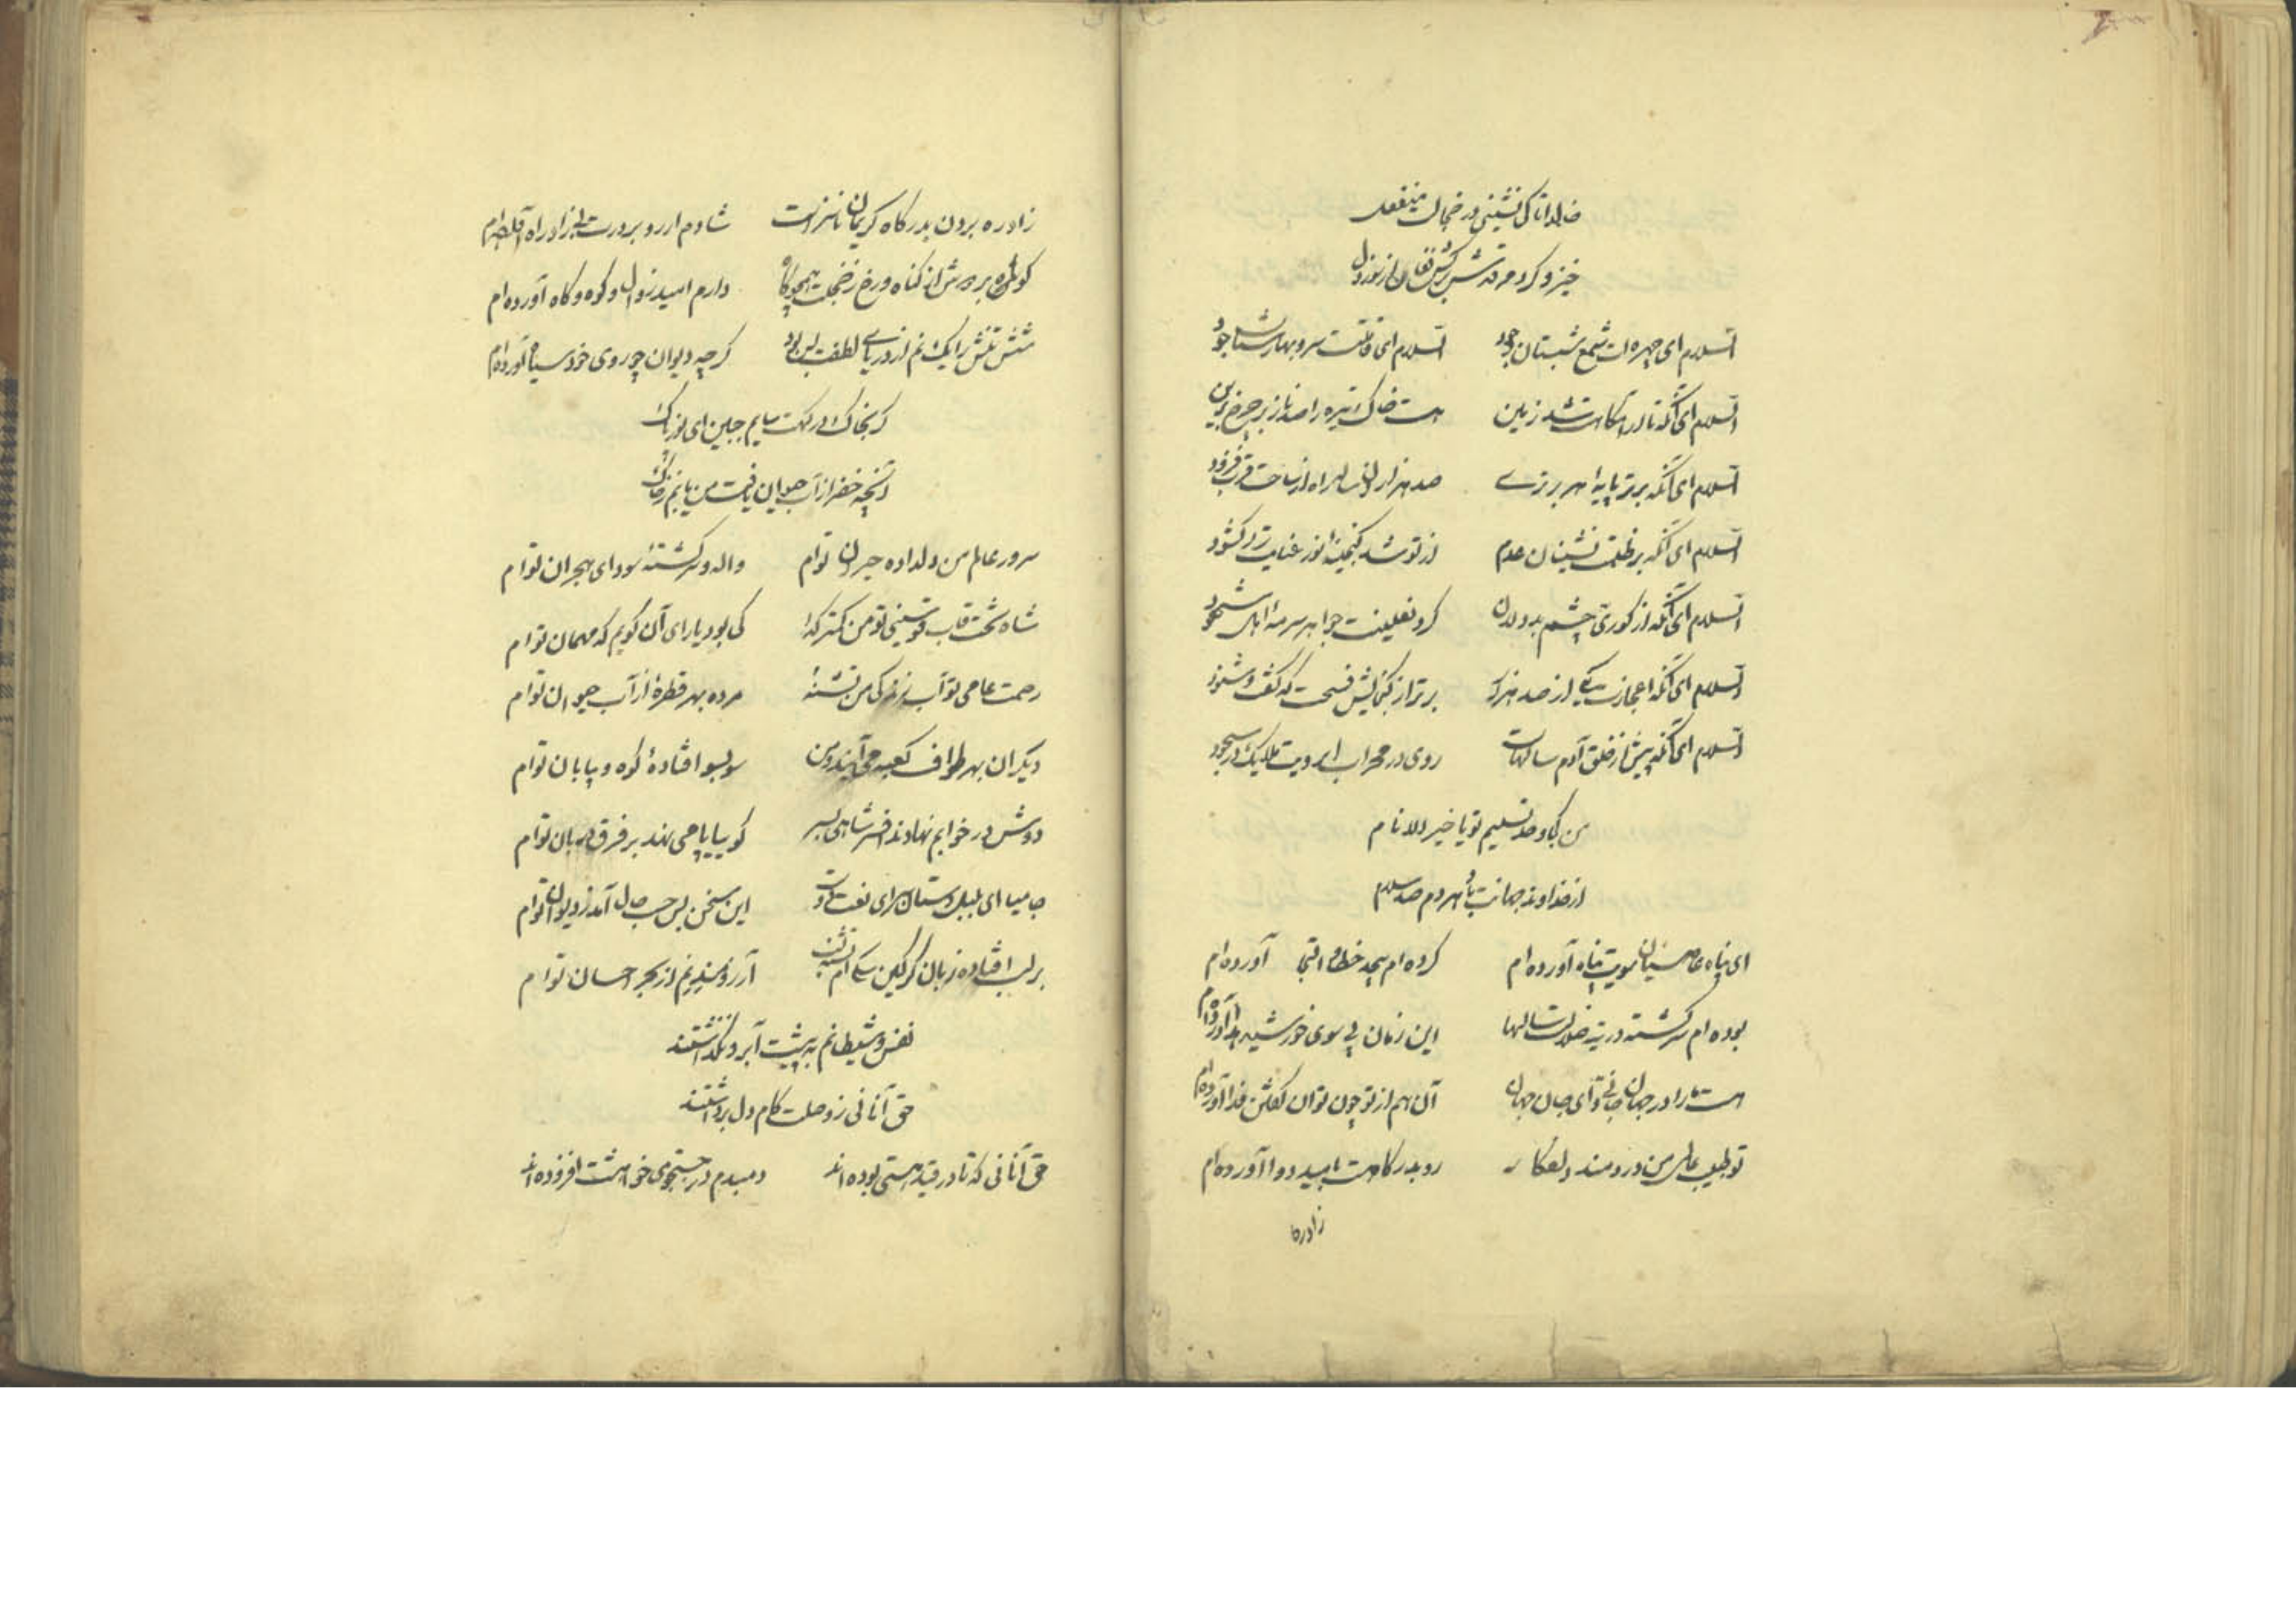 خالدا تا کی نشینی در خجالت منفعل
خیز و گرد مرقدش برکش فغان از سوز دل
السلام ای چهره‌ات شمع شبستان وجود السلام ای قامتت سرو بهارستان جود
السلام ای آنکه تا آرامگاهت شد زمین هست خاک تیره را صد ناز بر چرخ برین
السلام ای آنکه برتر پایهٔ هر برتری صد هزاران ساله راه از ساحت قرب فرود
السلام ای آنکه بر ظلمت نشینان عدم از تو شد گنجینهٔ نور عنایت در گشود
السلام ای آنکه از کوری چشم بددلان گرد نعلینت جواهر سرمهٔ اهل شهود
السلام ای آنکه اعجازت یکی از صد هزار برتر از گنجایش فسحت که گفت و شنود
السلام ای آنکه پیش از خلق آدم سالهات روی در محراب ابرویت ملایک در سجود
من کجا و حد تسلیم تو یا خیر الانام
از خداوند جهانت باد هر دم صد سلام
ای پناه عاصیان سویت پناه آورده‌ام کرده‌ام بیحد خطا و التجا آورده‌ام
بوده‌ام سرگشته در تیه ضلالت سالها این زمان پی سوی خورشید هدا آورده‌ام
هست ما را در جهان جانی و ای جان جهان آن هم از تو چون توان گفتن فدا آورده‌ام
تو طبیب عالمی من دردمند دلفگار رو بدرگاهت بامید دوا آورده‌ام
زاد ره
زاد ره بردن بدرگاه کریمان ناسزاست شادم ار رو بر درت بی زاد راه آورده‌ام
کوهها بر دوش از گناه و رخ ز خجلت همچو کاه دارم امید زوال و کوه و کاه آورده‌ام
شستنش را یک نم از دریای لطفت بس بود گرچه دیوان چو روی خود سیاه آورده‌ام
گر بخاک درگهت سایم جبین ای نور پاک
آنچه خضر از آب حیوان یافت من یابم ز خاک
سرور عالم من دلداده حیران توام واله و سرگشتهٔ سودای هجران توام
شاه تخت قاب قوسینی تو من کمتر گدا کی بود یارای آن گویم که مهمان توام
رحمت عامی تو آب زندگی من تشنهٔ مرده بهر قطرهٔ از آب حیوان توام
دیگران بهر طواف کعبه می‌آیند و من سو بسو افتادهٔ کوه و بیابان توام
دوش در خوابم نهادند افسر شاهی بسر گوییا پا می‌نهد بر فرق دربان توام
جامیا ای بلبل دستان سرای نعت دوست این سخن بس حسب حال آمد ز دیوان توام
بر لب افتاده زبان گرگین سگی‌ام تشنه لب آرزومند نمی از بحر احسان توام
نفس و شیطانم به پیشت آبرو نگذاشتند
حق آنانی ز وصلت کام دل برداشتند
حق آنانی که تا در قید هستی بوده‌اند دمبدم در جستجوی خواهشت افزوده‌اند